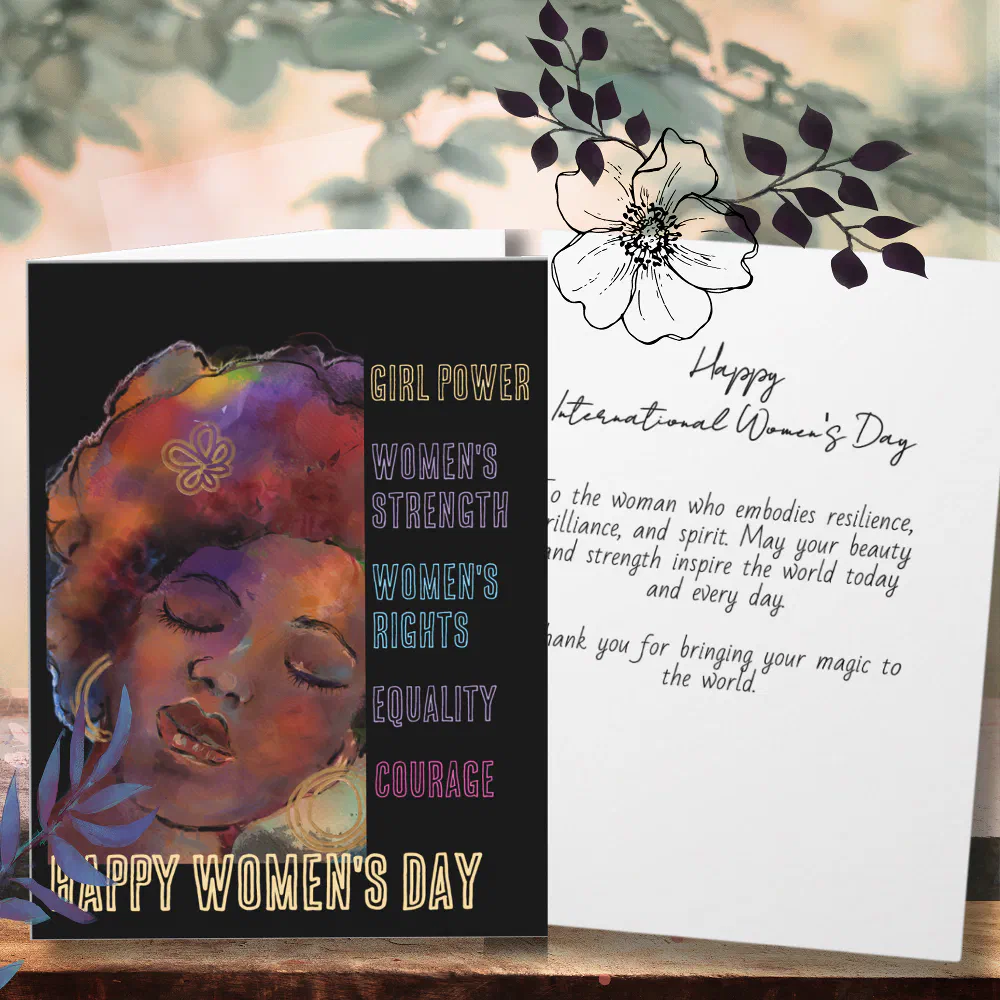 GIRL POWER
WOMEN'S
STRENGTH
WOMEN'S
RIGHTS
EQUALITY
COURAGE
HAPPY WOMEN'S DAY
Happy
International Women's Day
To the woman who embodies resilience,
rilliance, and spirit. May your beauty
and strength inspire the world today
and every day.
hank you for bringing your magic to
the world.